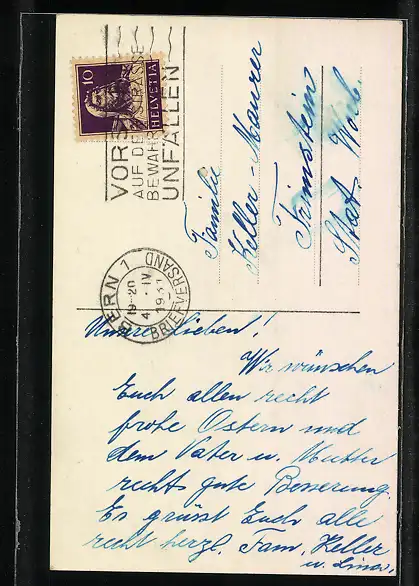 10
HELVETIA
VOR
AUF DER STRASSE
BEWAHR
UNFÄLLEN
BERN 1
19-20
4.IV
1931
BRIEFVERSAND
Familie
Keller-Maurer
Trimstein
Stat. Worb.
Unsere Lieben!
Wir wünschen
Euch allen recht
frohe Ostern und
dem Vater u. Mutter
rechts gute Besserung.
Es grüsst Euch alle
recht herzl. Fam. Keller
u. Lina.